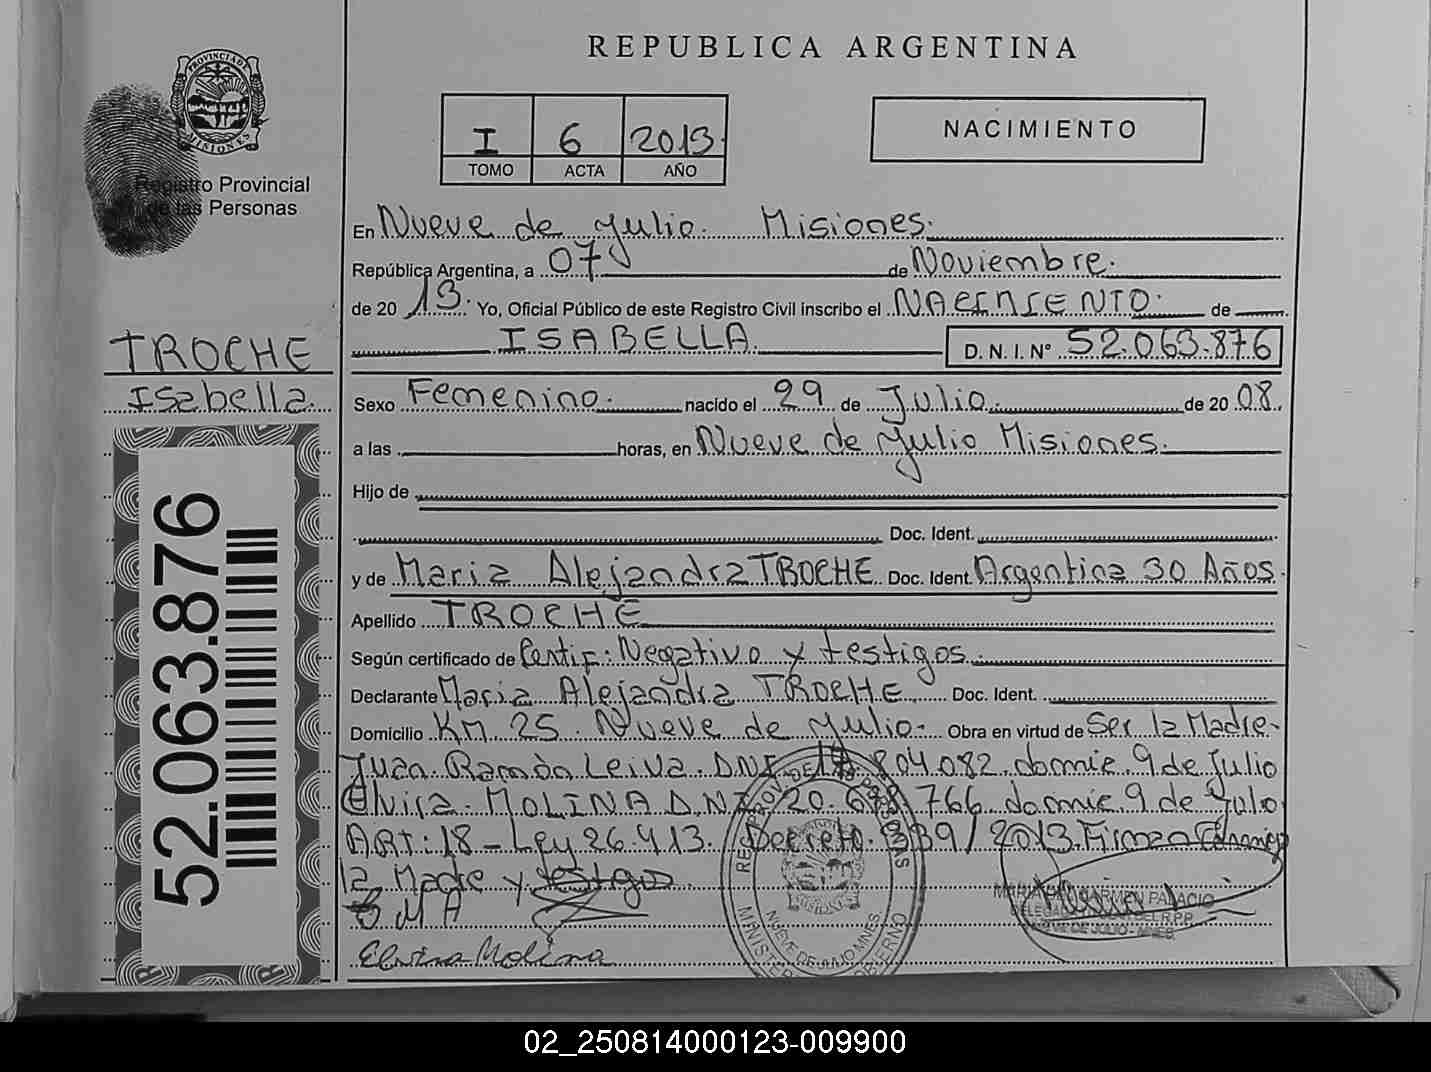 REPUBLICA ARGENTINA
PROVINCIA DE MISIONES
Registro Provincial
de las Personas
I 6 2013.
TOMO ACTA AÑO
NACIMIENTO
En Nueve de Julio. Misiones.
República Argentina, a 07 de Noviembre.
de 20 13. Yo, Oficial Público de este Registro Civil inscribo el NACIMIENTO. de
ISABELLA. D. N. I. N° 52.063.876
TROCHE
Isabella.
Sexo Femenino. nacido el 29 de Julio. de 20 08.
a las horas, en Nueve de Julio Misiones.
Hijo de
Doc. Ident.
y de Maria Alejandra TROCHE Doc. Ident. Argentina 30 Años.
Apellido TROCHE
Según certificado de Certif: Negativo y testigos.
Declarante Maria Alejandra TROCHE Doc. Ident.
Domicilio KM 25. Nueve de Julio. Obra en virtud de Ser la Madre-
Juan Ramón Leiva. DNI 804.082. domic. 9 de Julio
Elvira MOLINA D.N.I 20. 766 domic. 9 de Julio
ART: 18 - Ley 26.413. Decreto. 339/2013. Firman
la Madre y testigos
T M A
Elvira Molina
MARIA DEL CARMEN PALACIO
NUEVE DE JULIO - MNES.
REG. PROV. DE LAS PERSONAS
NUEVE DE JULIO MNES
MINISTERIO GOBIERNO
52.063.876
02_250814000123-009900